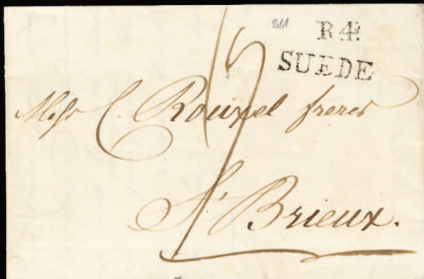 811
R4.
SUEDE
Messr C. Rouxel freres
St Brieux.